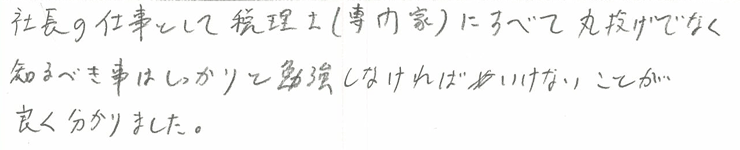 社長の仕事として税理士(専門家)にすべて丸投げでなく
知るべき事はしっかりと勉強しなければいけないことが
良く分かりました。